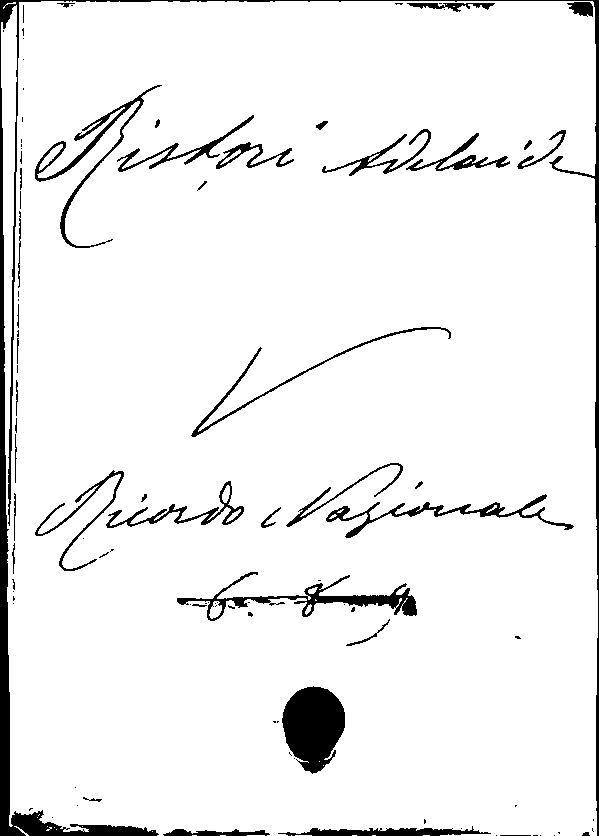 Ristori Adelaide
V
Ricordo Nazionale
6. 8. 9